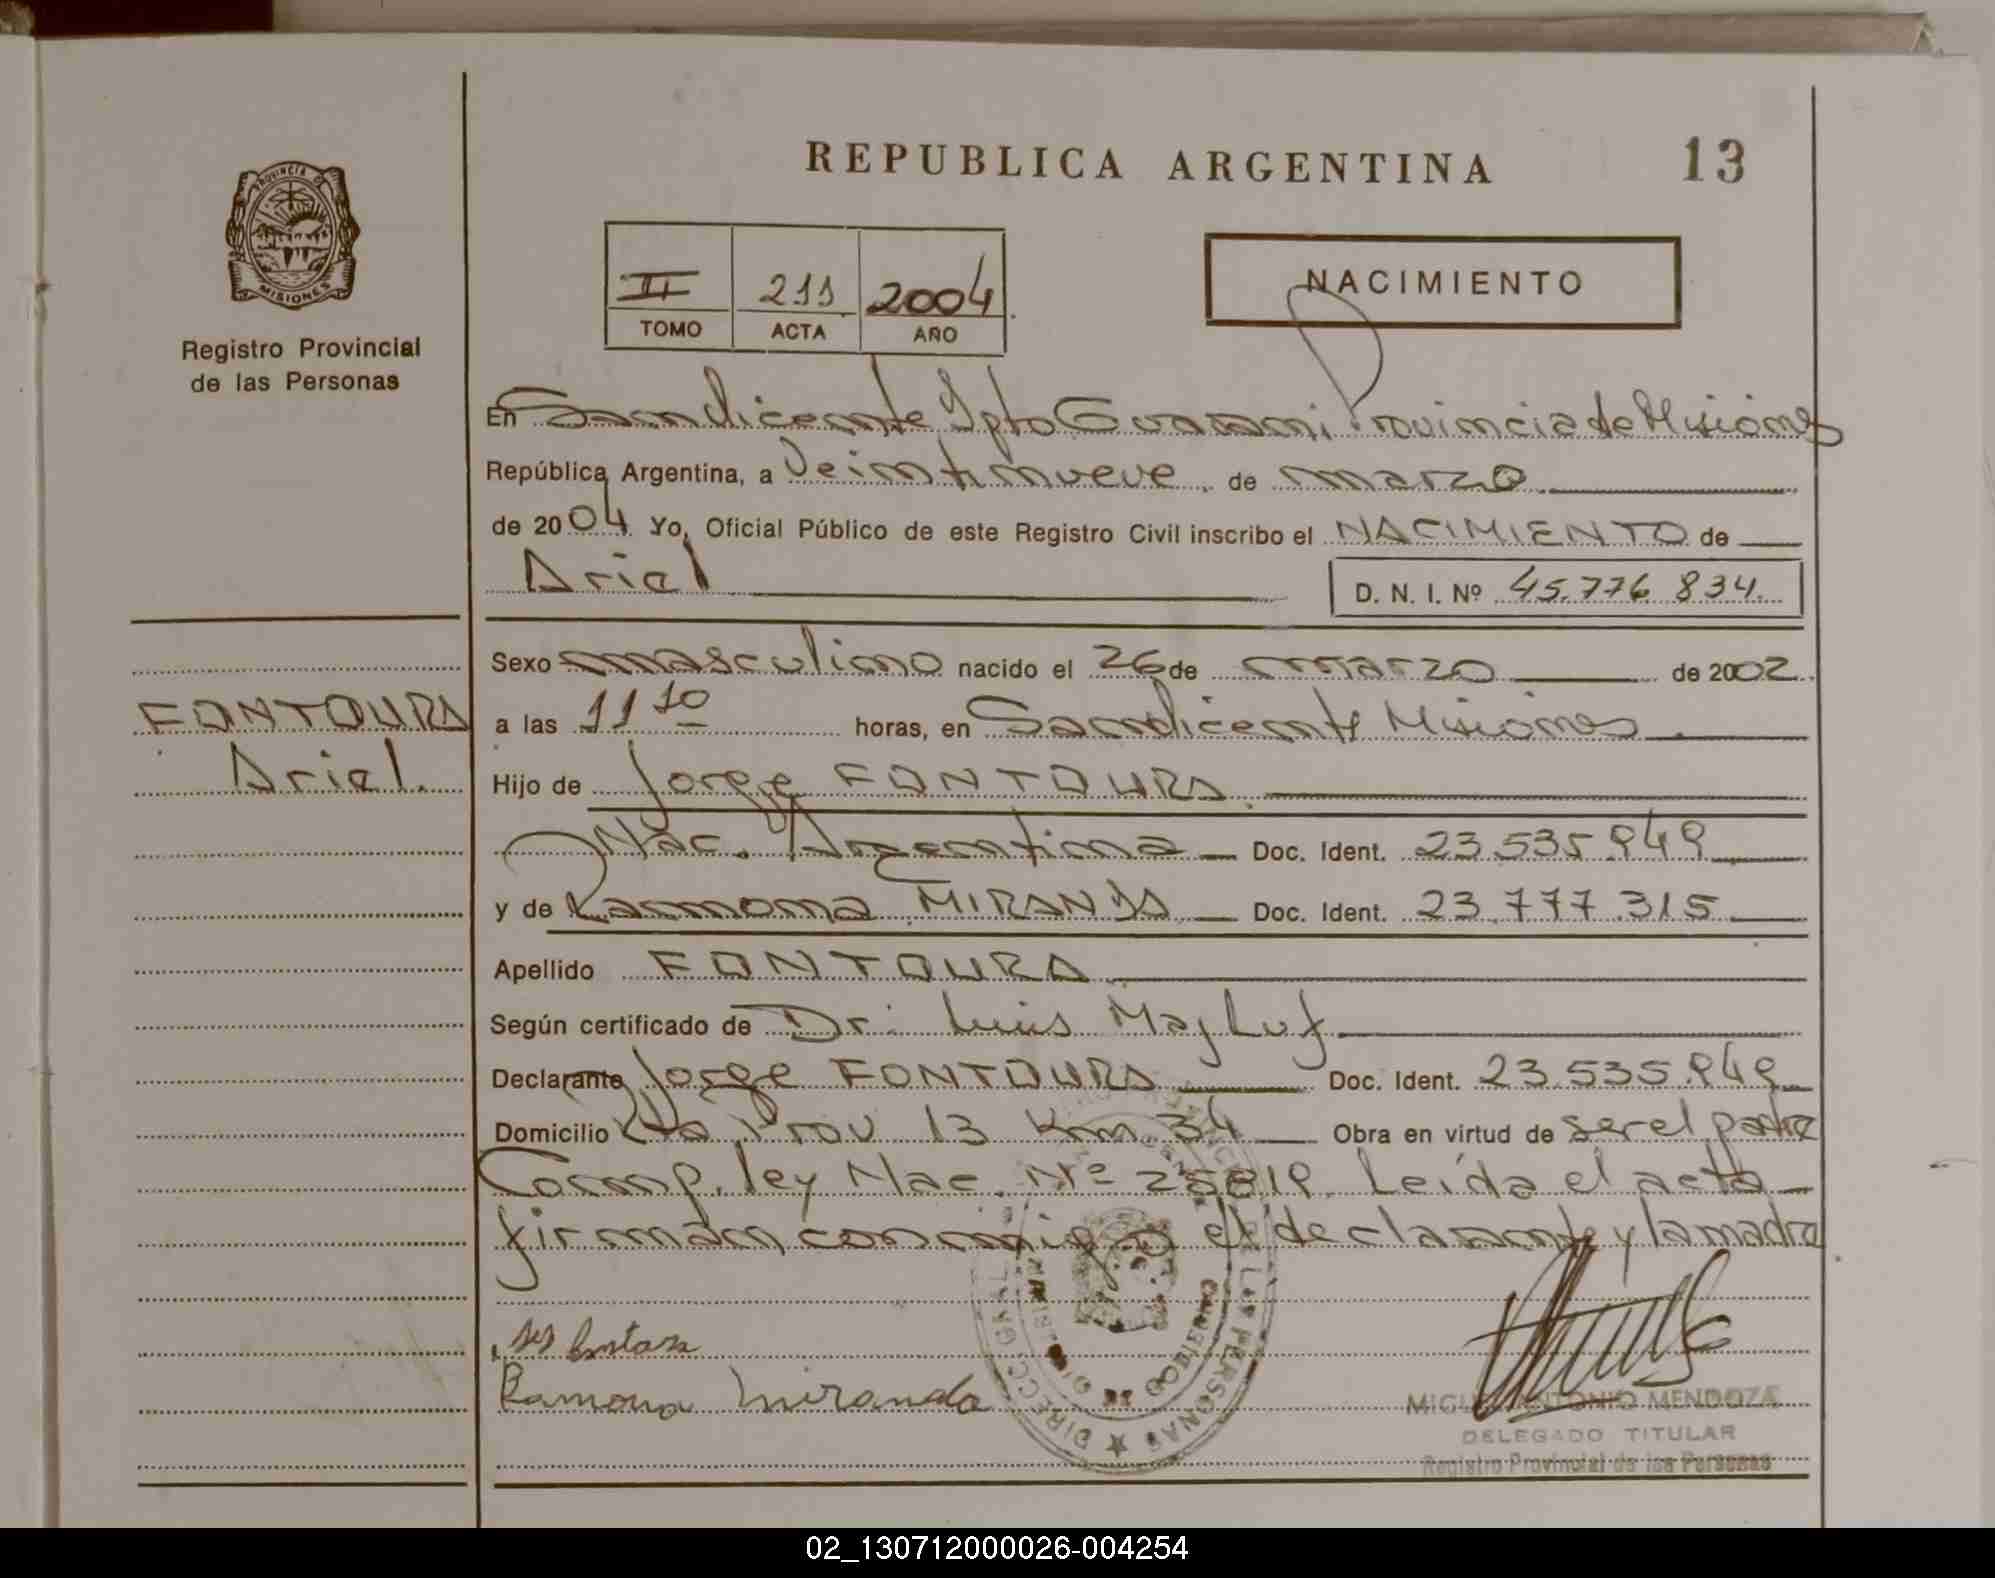 REPUBLICA ARGENTINA 13
PROVINCIA DE
MISIONES
Registro Provincial
de las Personas
II 211 2004
TOMO ACTA AÑO
NACIMIENTO
En San Vicente Dpto Guarani Provincia de Misiones
República Argentina, a Veintinueve de marzo
de 2004 Yo, Oficial Público de este Registro Civil inscribo el NACIMIENTO de
Ariel
D. N. I. Nº 45.776.834.
Sexo masculino nacido el 26 de marzo de 2002
FONTOURA
Ariel.
a las 11 10 horas, en San Vicente Misiones
Hijo de Jorge FONTOURA
Nac. Argentina Doc. Ident. 23.535.949
y de Ramona MIRANDA Doc. Ident. 23.777.315
Apellido FONTOURA
Según certificado de Dr. Luis Majluf
Declarante Jorge FONTOURA Doc. Ident. 23.535.949
Domicilio Rta Prov 13 Km 34 Obra en virtud de ser el padre
Comp. ley Nac. Nº 25819. Leída el acta
firman conmigo el declarante y la madre
Ramona Miranda
MIGUEL ANTONIO MENDOZA
DELEGADO TITULAR
Registro Provincial de las Personas
02_130712000026-004254